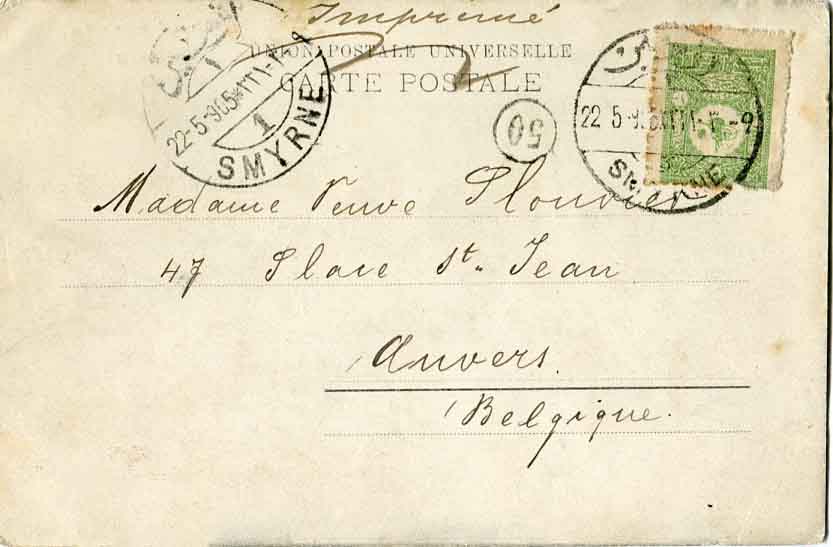 Imprimé
UNION POSTALE UNIVERSELLE
CARTE POSTALE
22-5-905
1
SMYRNE
50
22 5-905
SMYRNE
Madame Veuve Plouvier
47 Place St. Jean
Anvers.
Belgique.